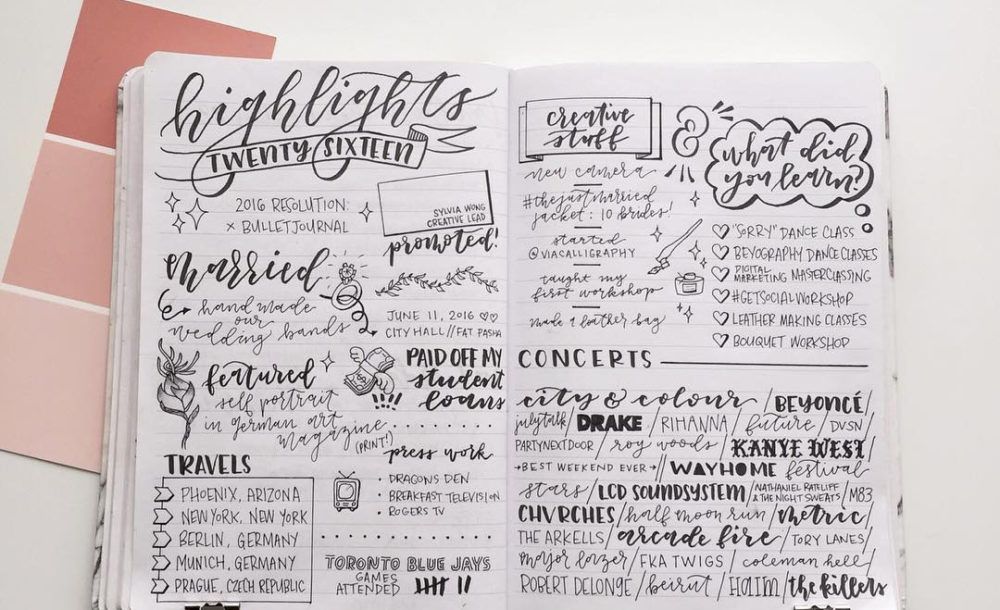 highlights
TWENTY SIXTEEN
2016 RESOLUTION:
× BULLETJOURNAL
SYLVIA WONG
CREATIVE LEAD
promoted!
married
hand made
our
wedding bands
JUNE 11, 2016 ♡♡
CITY HALL//FAT PASHA
featured
self portrait
in german art
magazine
(PRINT!)
PAID OFF MY
student
loans
press work
• DRAGONS DEN
• BREAKFAST TELEVISION
• ROGERS TV
TRAVELS
PHOENIX, ARIZONA
NEW YORK, NEW YORK
BERLIN, GERMANY
MUNICH, GERMANY
PRAGUE, CZECH REPUBLIC
TORONTO BLUE JAYS
GAMES
ATTENDED
creative
stuff
&
what did
you learn?
new camera
#thejustmarried
jacket: 10 brides!
started
@VIACALLIGRAPHY
taught my
first workshop
made a leather bag
♡ "SORRY" DANCE CLASS
♡ BEYOGRAPHY DANCE CLASSES
♡ DIGITAL MARKETING MASTERCLASSING
♡ #GETSOCIALWORKSHOP
♡ LEATHER MAKING CLASSES
♡ BOUQUET WORKSHOP
CONCERTS
city & colour / BEYONCÉ /
july talk / DRAKE / RIHANNA / future / DVSN /
PARTYNEXTDOOR / roy woods / KANYE WEST /
→BEST WEEKEND EVER→ // WAYHOME festival
stars / LCD SOUNDSYSTEM / NATHANIEL RATELIFF & THE NIGHT SWEATS / M83
CHVRCHES / half moon run / metric /
THE ARKELLS / arcade fire / TORY LANES /
major lazer / FKA TWIGS / coleman hell /
ROBERT DELONGE / beirut / HAIIM / the killers